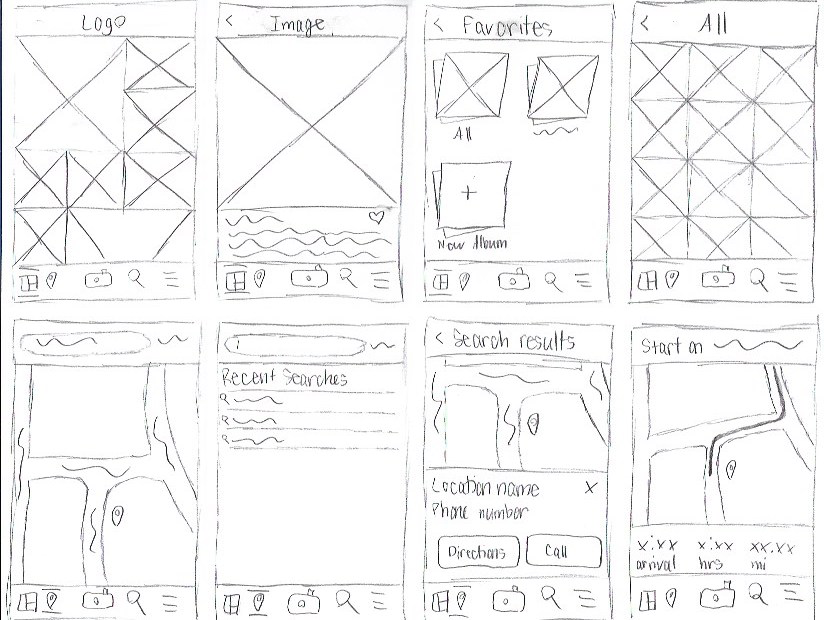 Logo
< Image
< Favorites
< All
All
+
New Album
Recent Searches
< Search results
Location name X
Phone number
Directions
Call
Start on
x:xx x:xx xx.xx
arrival hrs mi